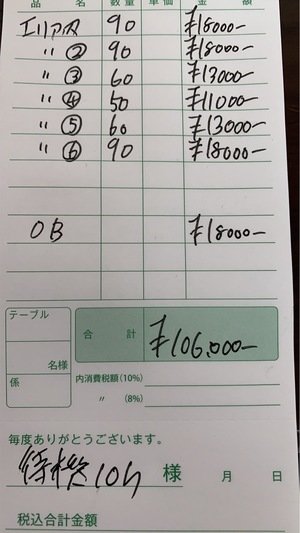 品 名 数量 単価 金 額
エリア 90 ¥18000-
〃 ② 90 ¥18000-
〃 ③ 60 ¥13000-
〃 ④ 50 ¥11000-
〃 ⑤ 60 ¥13000-
〃 ⑥ 90 ¥18000-
OB ¥18000-
テーブル
合 計 ¥106,000-
名様
係
内消費税額(10%)
〃 (8%)
毎度ありがとうございます。
待機10h 様 月 日
税込合計金額